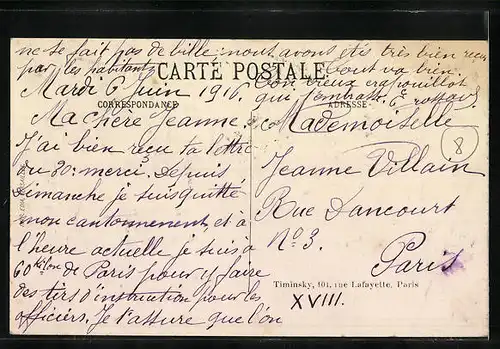 ne se fait pas de bille: nous avons étés très bien reçu
par les habitants
tout va bien.
CARTE POSTALE
Ton vieux crapouillot
qui t'embrasse.
CORRESPONDANCE
ADRESSE
Mardi 6 Juin 1916.
Ma chère Jeanne.
J'ai bien reçu ta lettre
du 30: merci. Depuis
Dimanche je suis quitté
mon cantonnement, et à
l'heure actuelle je suis à
60 kilom de Paris pour y faire
des tirs d'instruction pour les
officiers. Je t'assure que l'on
Mademoiselle
Jeanne Villain
Rue Dancourt
No. 3.
Paris
8
Timinsky, 101, rue Lafayette, Paris
XVIII.